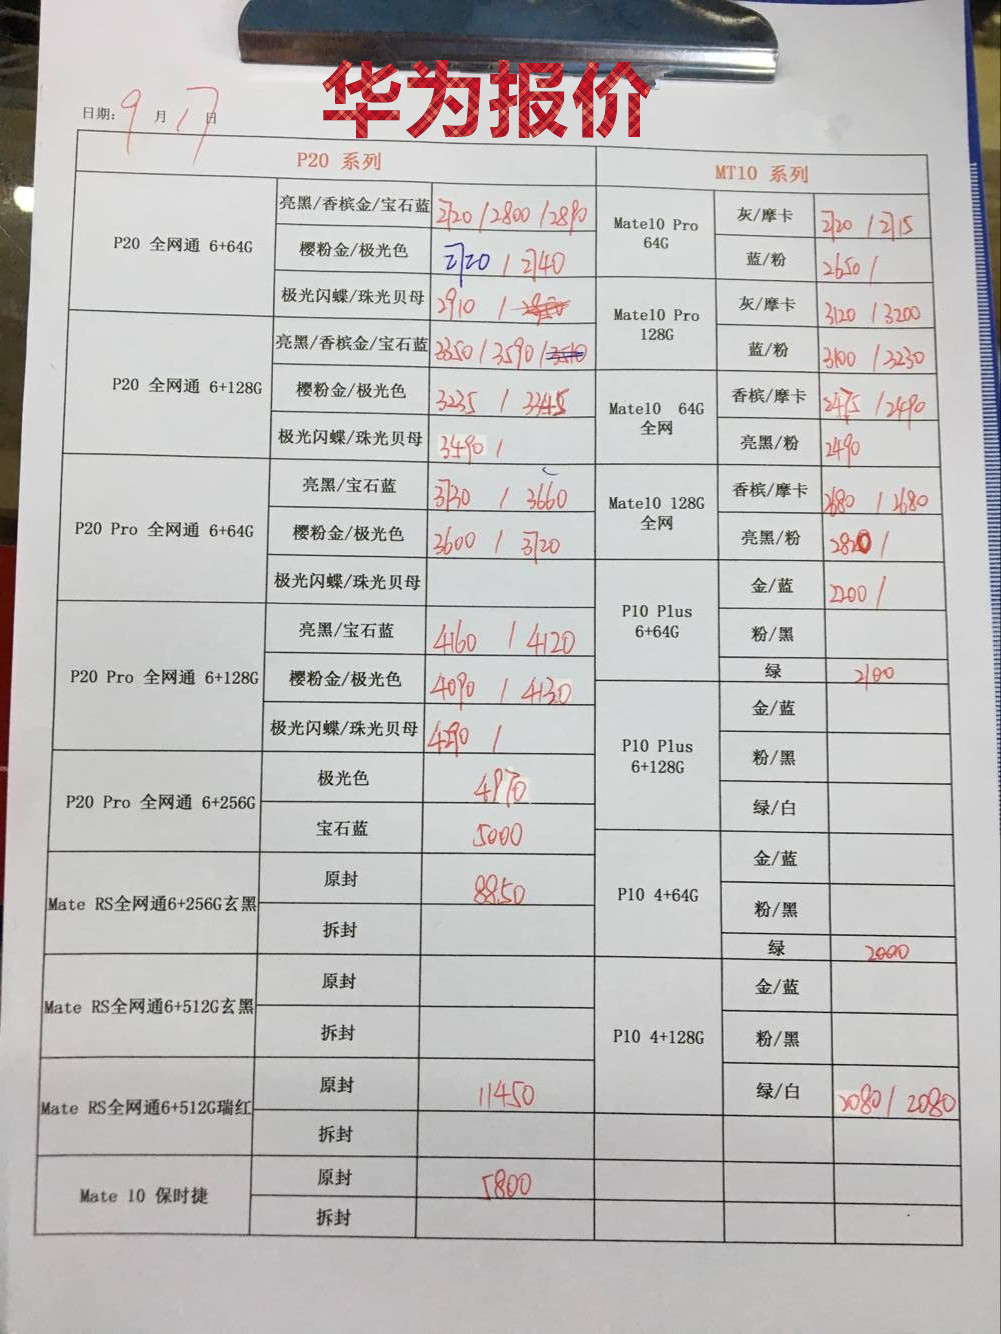 华为报价
日期: 9 月 17 日
P20 系列
P20 全网通 6+64G
亮黑/香槟金/宝石蓝 2720 / 2800 / 2890
樱粉金/极光色 2720 / 2740
极光闪蝶/珠光贝母 2910 /
P20 全网通 6+128G
亮黑/香槟金/宝石蓝 3350 / 3590 / 3510
樱粉金/极光色 3235 / 3345
极光闪蝶/珠光贝母 3490 /
P20 Pro 全网通 6+64G
亮黑/宝石蓝 3730 / 3660
樱粉金/极光色 3600 / 3720
极光闪蝶/珠光贝母
P20 Pro 全网通 6+128G
亮黑/宝石蓝 4160 / 4120
樱粉金/极光色 4090 / 4130
极光闪蝶/珠光贝母 4290 /
P20 Pro 全网通 6+256G
极光色 4970
宝石蓝 5000
Mate RS全网通6+256G玄黑
原封 8850
拆封
Mate RS全网通6+512G玄黑
原封
拆封
Mate RS全网通6+512G瑞红
原封 11450
拆封
Mate 10 保时捷
原封 5800
拆封
MT10 系列
Mate10 Pro
64G
灰/摩卡 2720 / 2715
蓝/粉 2650 /
Mate10 Pro
128G
灰/摩卡 3120 / 3200
蓝/粉 3100 / 3230
Mate10 64G
全网
香槟/摩卡 2475 / 2490
亮黑/粉 2490
Mate10 128G
全网
香槟/摩卡 2680 / 2680
亮黑/粉 2820 /
P10 Plus
6+64G
金/蓝 2200 /
粉/黑
绿 2100
P10 Plus
6+128G
金/蓝
粉/黑
绿/白
P10 4+64G
金/蓝
粉/黑
绿 2000
P10 4+128G
金/蓝
粉/黑
绿/白 2080 / 2080